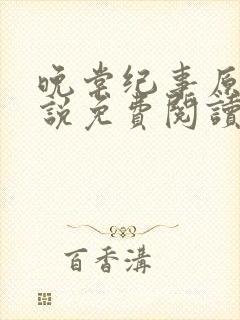 晚棠纪事原
說免費閱讀
百香溝